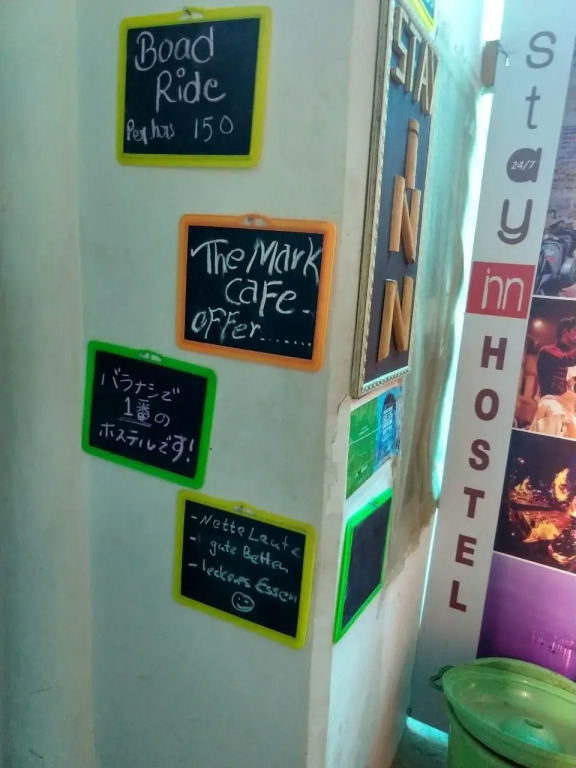 Boad
Ride
Per hrs 150
The Mark
cafe
offer.......
バラナシで
1番の
ホステルです!
- Nette Leute
- gute Betten
- leckeres Essen
STAY
iNN
stay
24/7
inn
HOSTEL